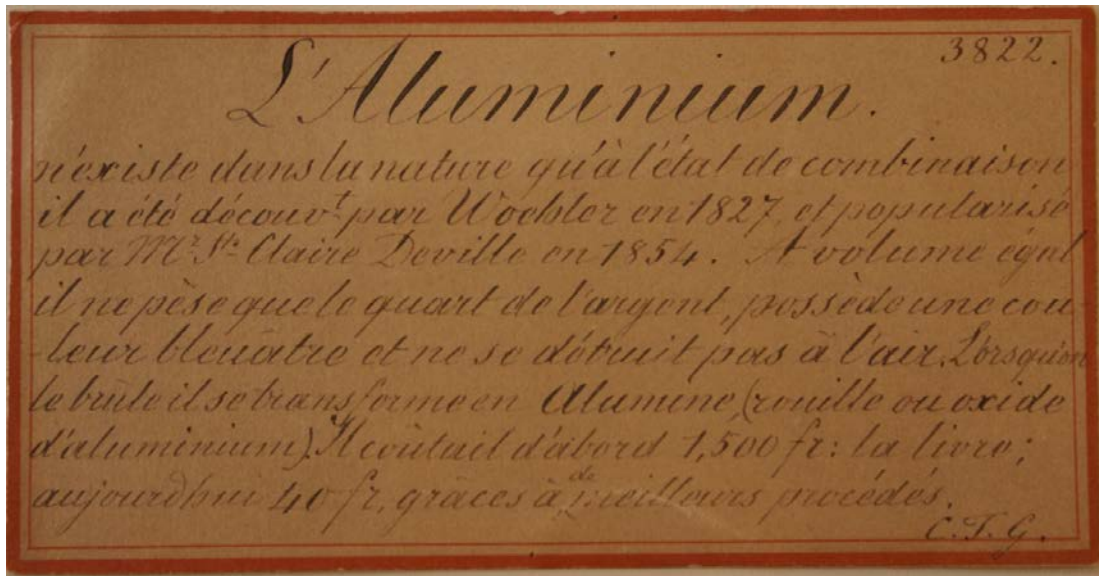 3822.
L'Aluminium.
n'existe dans la nature qu'à l'état de combinaison
il a été découvt par Woehler en 1827, et popularisé
par Mr Ste Claire Deville en 1854. A volume égal
il ne pèse que le quart de l'argent, possède une cou-
-leur bleuâtre et ne se détruit pas à l'air. Lorsqu'on
le brûle il se transforme en Alumine (rouille ou oxide
d'aluminium). Il coûtait d'abord 1,500 fr: la livre;
aujourdhui 40 fr, grâces à de meilleurs procédés.
C.T.G.